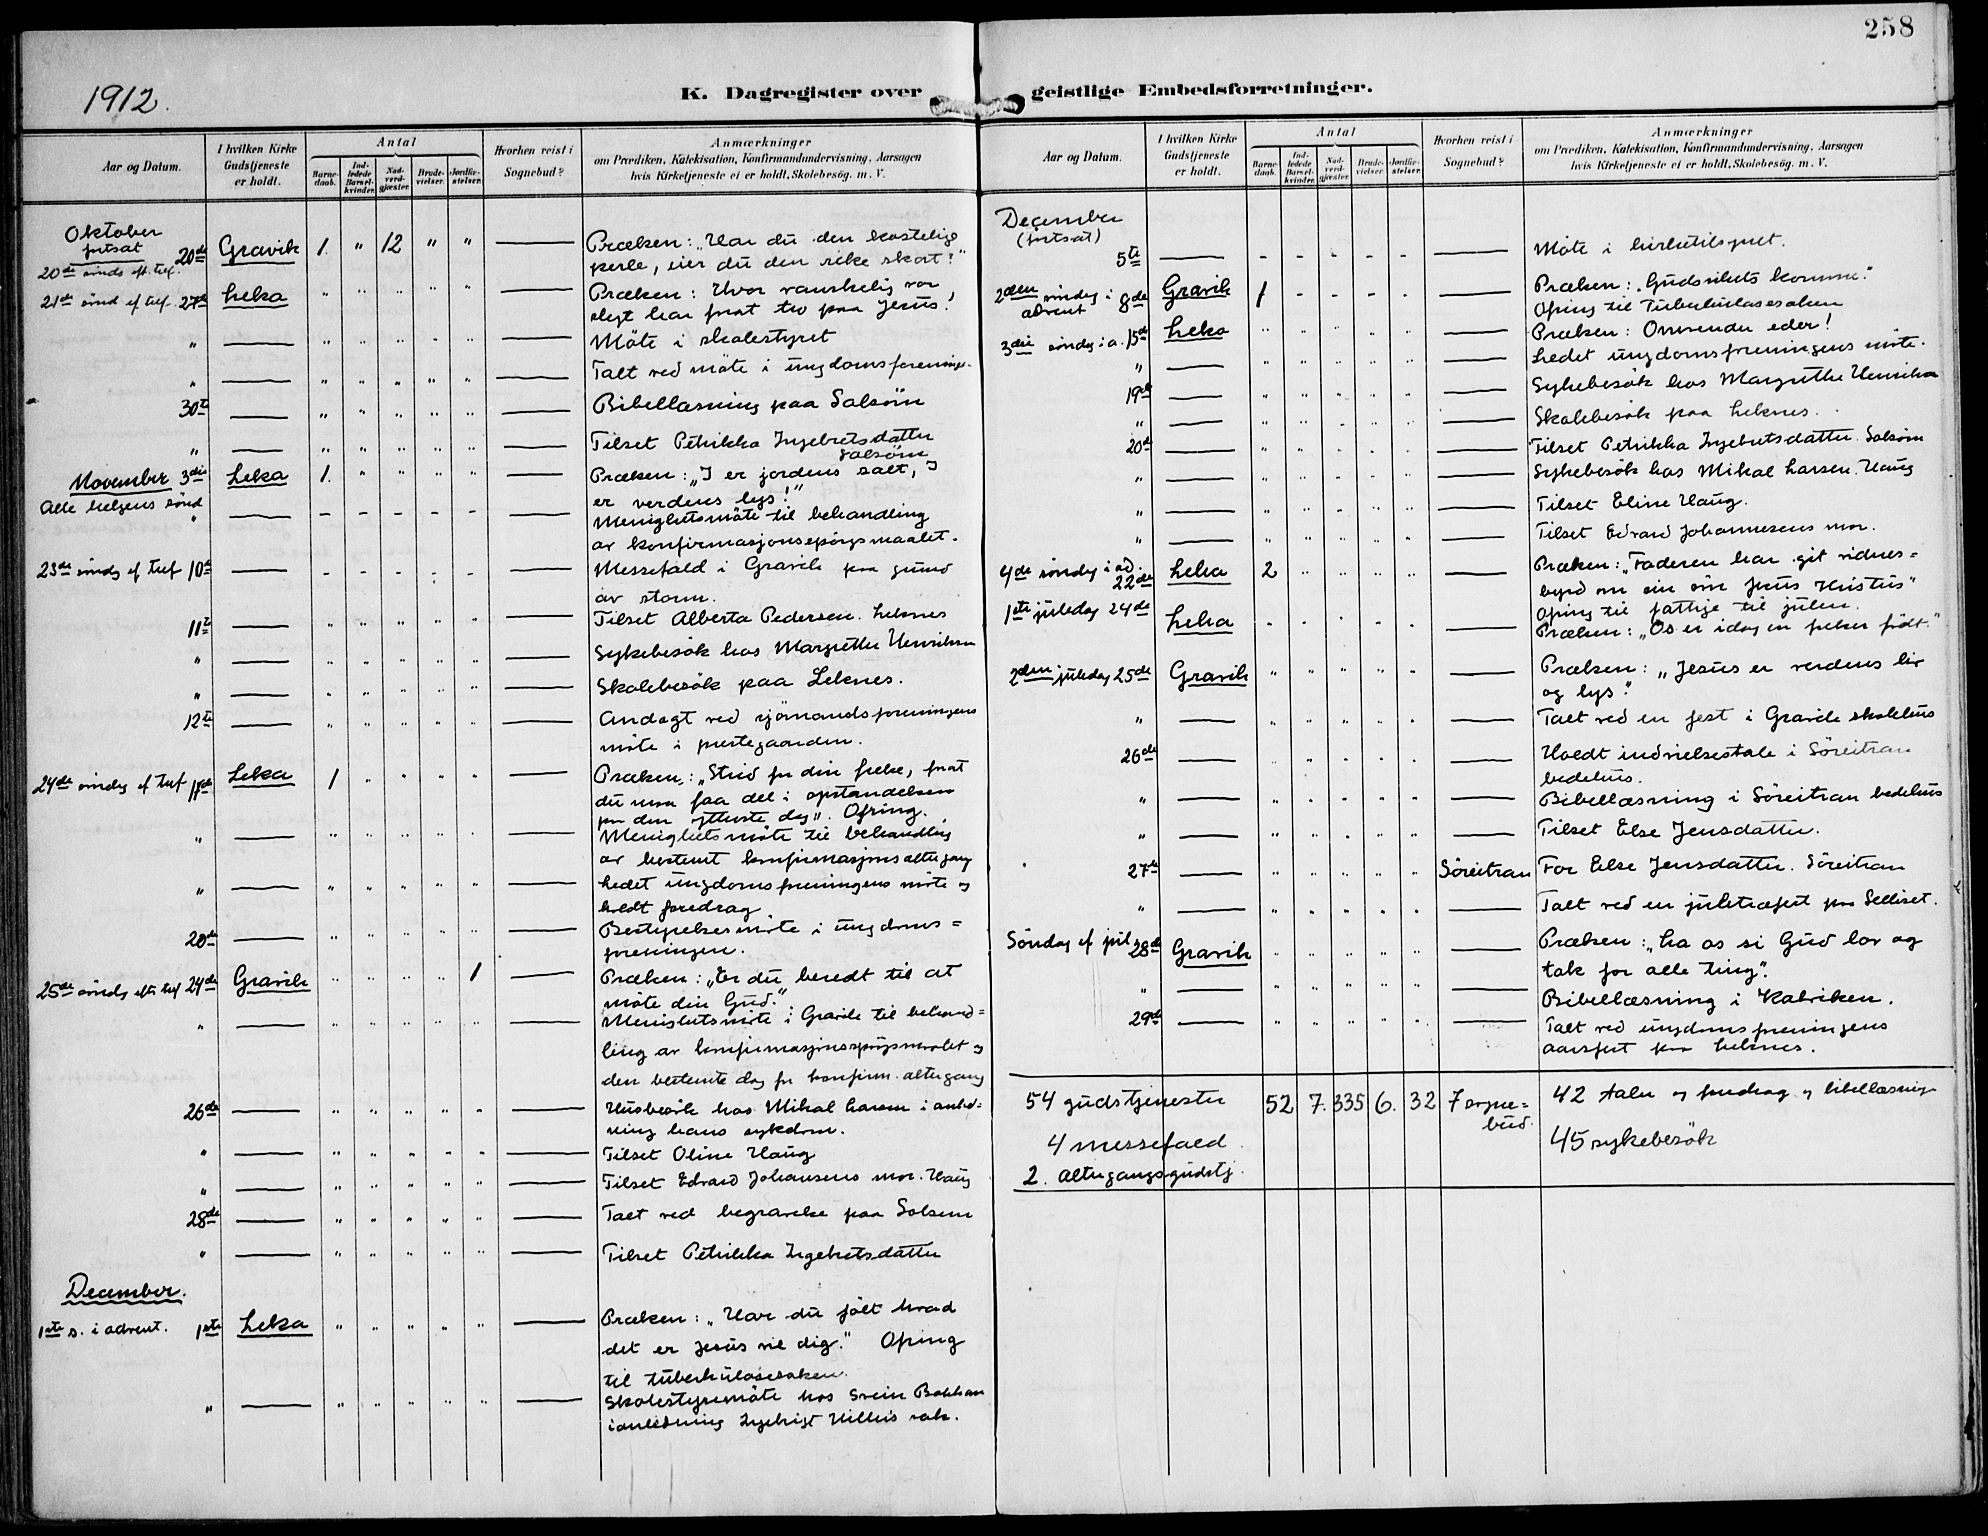 258
1912.
K. Dagregister over geistlige Embedsforretninger.
Aar og Datum.
I hvilken Kirke Gudstjeneste er holdt.
Antal
Barnedaab.
Indledede Barselkvinder.
Nadverdgjæster.
Brudevielser.
Jordfæstelser.
Hvorhen reist i Sognebud?
Anmærkninger
om Prædiken, Katekisation, Konfirmandundervisning, Aarsagen
hvis Kirketjeneste ei er holdt, Skolebesøg. m. V.
Oktober
fortsat
20de Gravik 1. " 12 " " Præken: „Har du den kostelige
20de sönds eft. tref. perle, eier du den rike skat?"
21de sönd ef tref. 27de Leka " " " " " Præken: Hvor vanskelig vor
slegt har fnat tro paa Jesus!
" Möte i skolestyret
" Talt ved möte i ungdomsforeninge.
30te Bibellæsning paa Solsöm
" Tilset Petrikka Ingebretsdatter
Solsöm
November 3die Leka 1. " " " " Præken: „I er jordens salt, I
Alle helgens sönd er verdens lys!"
" Menighetsmöte til behandling
av konfirmasjonsspörgsmaalet.
23de sönds ef tref 10de Messefald i Gravik paa grund
av storm.
11te Tilset Alberta Pedersen. Leknes
" Sykebesök hos Margrethe Henriksen
" Skolebesök paa Leknes.
12te Andagt ved sjömandsforeningens
möte i prestegaarden.
24de sönds ef tref 17de Leka 1 " " " " Præken: „Strid for din frelse, forat
du maa faa del i opstandelsen
paa den ytterste dag". Ofring.
" Menighetsmöte til behandling
av bestemt konfirmasjons altergang
" Ledet ungdomsforeningens möte og
holdt foredrag
20de Bestyrelsesmöte i ungdoms=
foreningen.
25de sönds efter tref 24de Gravik " " " " 1 Præken: „Er du beredt til at
möte din Gud."
" Menighetsmöte i Gravik til behand=
ling av konfirmasjonsspörgsmaalet og
den bestemte dag for konfirm. altergang
26de Husbesök hos Mikal Larsen i anled=
ning hans sykdom.
" Tilset Oline Haug
" Tilset Edvard Johansens mor. Haug
28de Talt ved begravelse paa Solsem
" Tilset Petrikka Ingebretsdatter
December.
1ste s. i advent. 1ste Leka " " " " " Præken: „Har du fölt hvad
det er Jesus vil dig." Ofring
til tuberkulosesaken.
" Skolestyremöte hos Svein Bakken
i anledning Ingebrigt Hillius sak.
Aar og Datum.
I hvilken Kirke Gudstjeneste er holdt.
Antal
Barnedaab.
Indledede Barselkvinder.
Nadverdgjæster.
Brudevielser.
Jordfæstelser.
Hvorhen reist i Sognebud?
Anmærkninger
om Prædiken, Katekisation, Konfirmandundervisning, Aarsagen
hvis Kirketjeneste ei er holdt, Skolebesøg. m. V.
December
(fortsat)
5te Möte i kirketilsynet.
2den söndag i advent 8de Gravik 1 - - - - Præken: „Gudsrikets komme."
Ofring til Tuberkulosesaken
3die söndag i a. 15de Leka " " " " " Præken: Omvender eder!
" Ledet ungdomsforeningens möte.
19de Sykebesök hos Margrethe Henriksen
" Skolebesök paa Leknes.
20de Tilset Petrikka Ingebretsdatter. Solsöm
" Sykebesök hos Mikal Larsen. Haug
" Tilset Eline Haug.
" Tilset Edvard Johannesens mor.
4de söndag i ad. 22de Leka 2 " " " " Præken: „Faderen har git vidnes=
byrd om sin sön Jesus Kristus"
Ofring til fattige til julen.
1ste juledag 24de Leka Præken: „Os er idag en frelser födt."
2den juledag 25de Gravik " " " " " Præken: „Jesus er verdens liv
og lys."
" Talt ved en fest i Gravik skolehus
26de Holdt indvielsestale i Söreitran
bedehus.
" Bibellæsning i Söreitran bedehus
" Tilset Else Jensdatter.
27de Söreitran For Else Jensdatter. Söreitran
" Talt ved en juletræfest paa Selliset.
Söndag ef jul 28de Gravik Præken: „La os si Gud lov og
tak for alle ting".
" Bibellæsning i Kalviken.
29de Talt ved ungdomsforeningens
aarsfest paa Leknes.
54 gudstjenester 52 7. 335 6. 32 7 sogne=
bud. 42 taler og foredrag og bibellæsning
4 messefald 45 sykebesök
2. altergangsgudstj.